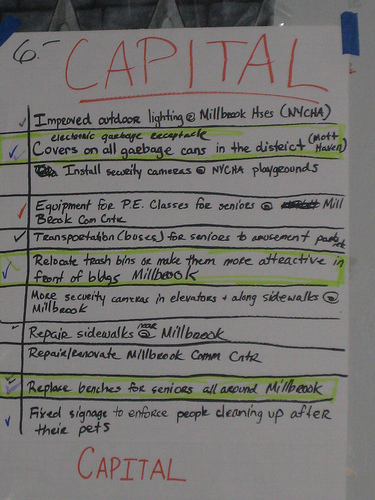 6.-
CAPITAL
Improved outdoor lighting @ Millbrook Hses (NYCHA)
electronic garbage receptacle
Covers on all garbage cans in the district (Mott Haven)
Install security cameras @ NYCHA playgrounds
Equipment for P.E. Classes for seniors @ Mill
Brook Com Cntr
Transportation (buses) for seniors to amusement park
Relocate trash bins or make them more attractive in
front of bldgs Millbrook
More security cameras in elevators + along sidewalks @
Millbrook
Repair sidewalks @ Millbrook
Repair/renovate Millbrook Comm Cntr
Replace benches for seniors all around Millbrook
Fixed signage to enforce people cleaning up after
their pets
CAPITAL